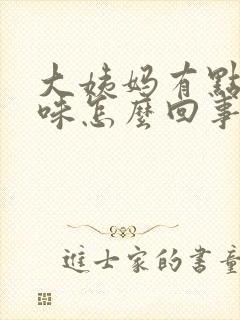 大姨妈有點
味怎麼回事
進士家的書童